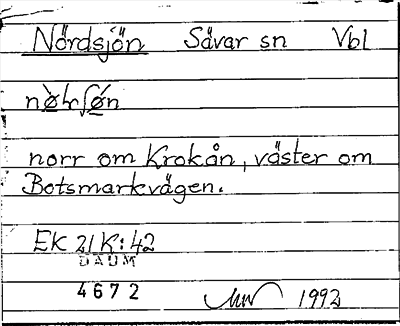 Nördsjön Sävar sn Vbl
norr om Krokån, väster om
Botsmarkvägen.
EK 21K:42
DAUM
4672
1992